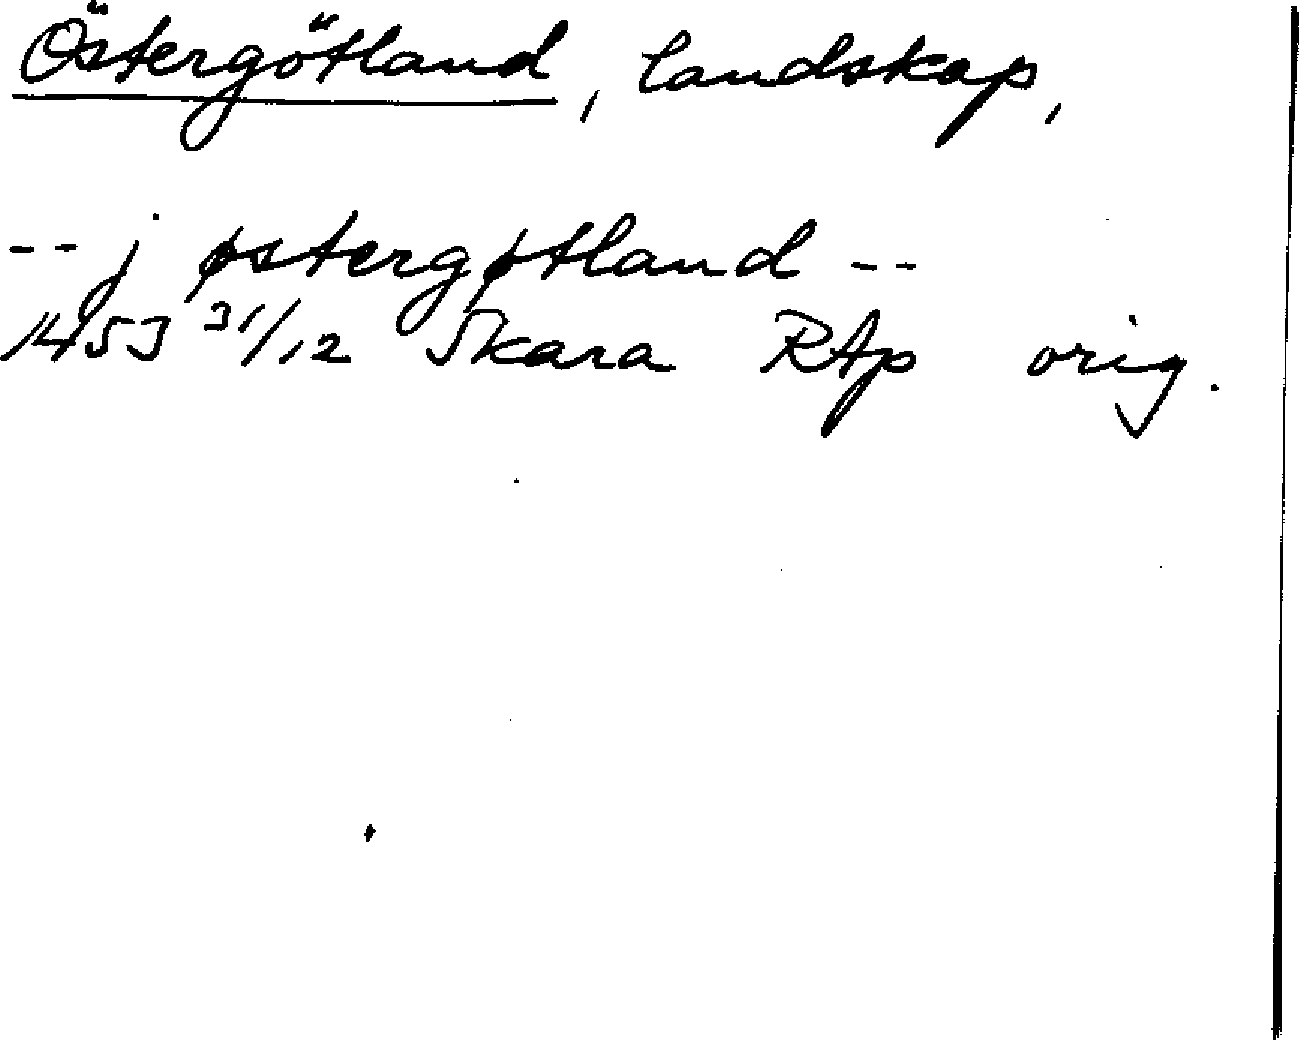 Östergötland, landskap,
-- j østergøtland --
1453 31/12 Skara RAp orig.